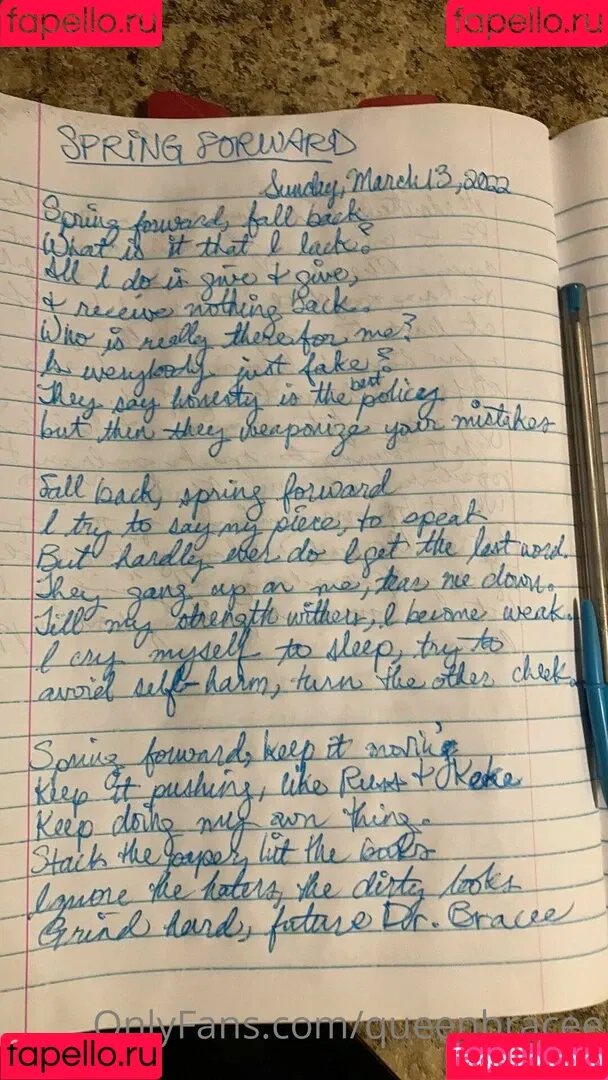 fapello.ru fapello.ru
SPRING FORWARD
Sunday, March 13, 2022
Spring forward, fall back
What is it that I lack?
All I do is give & give,
& receive nothing back.
Who is really there for me?
Is everybody just fake?
They say honesty is the best policy
but then they weaponize your mistakes
Fall back, spring forward
I try to say my piece, to speak
But hardly ever do I get the last word.
They gang up on me, tear me down.
Till my strength withers, I become weak.
I cry myself to sleep, try to
avoid self-harm, turn the other cheek.
Spring forward, keep it movin'
Keep it pushing, like Russ & Keke
Keep doing my own thing.
Stack the paper, hit the books
Ignore the haters, the dirty looks
Grind hard, future Dr. Bracee
OnlyFans.com/queenbracee
fapello.ru fapello.ru